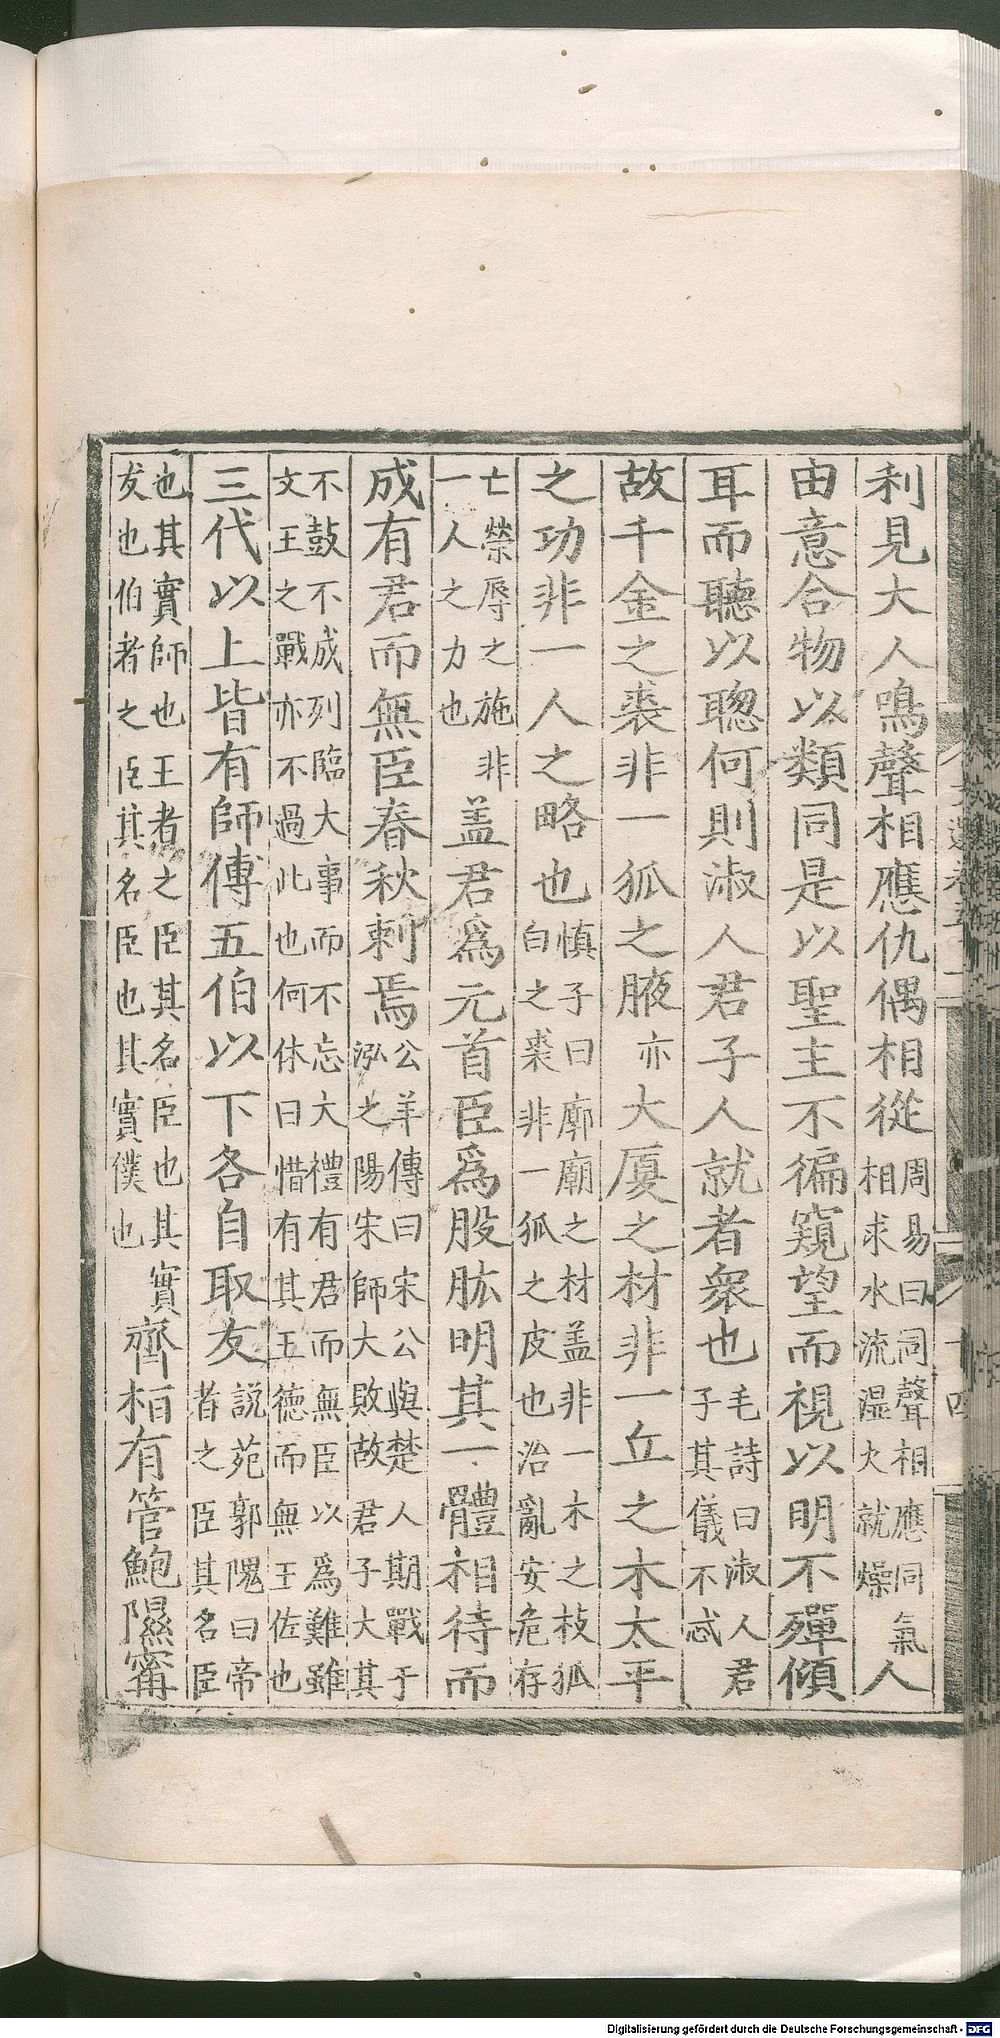 利見大人鳴聲相應仇偶相從周易曰同聲相應同氣相求水流濕火就燥人
由意合物以類同是以聖主不徧窺望而視以明不殫傾
耳而聽以聰何則淑人君子人就者衆也毛詩曰淑人君子其儀不忒
故千金之裘非一狐之腋亦大厦之材非一丘之木太平
之功非一人之略也慎子曰廊廟之材盖非一木之枝狐白之裘非一狐之皮也治亂安危存
亡榮辱之施非一人之力也盖君爲元首臣爲股肱明其一體相待而
成有君而無臣春秋刺焉公羊傳曰宋公與楚人期戰于泓之陽宋師大敗故君子大其
不鼓不成列臨大事而不忘大禮有君而無臣以爲難雖文王之戰亦不過此也何休曰惜有其五德而無王佐也
三代以上皆有師傅五伯以下各自取友説苑郭隗曰帝者之臣其名臣
也其實師也王者之臣其名臣也其實友也伯者之臣其名臣也其實僕也齊桓有管鮑隰甯
Digitalisierung gefördert durch die Deutsche Forschungsgemeinschaft - DFG